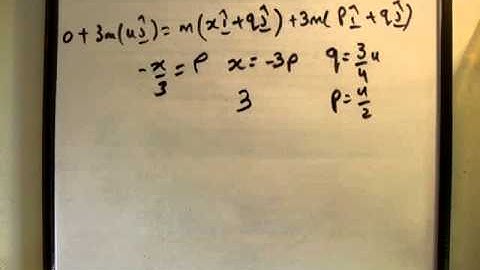 0 + 3m(u ĵ) = m(x î + q ĵ) + 3m(p î + q ĵ)
-x/3 = p   x = -3p   q = 3/4 u
3   p = u/2